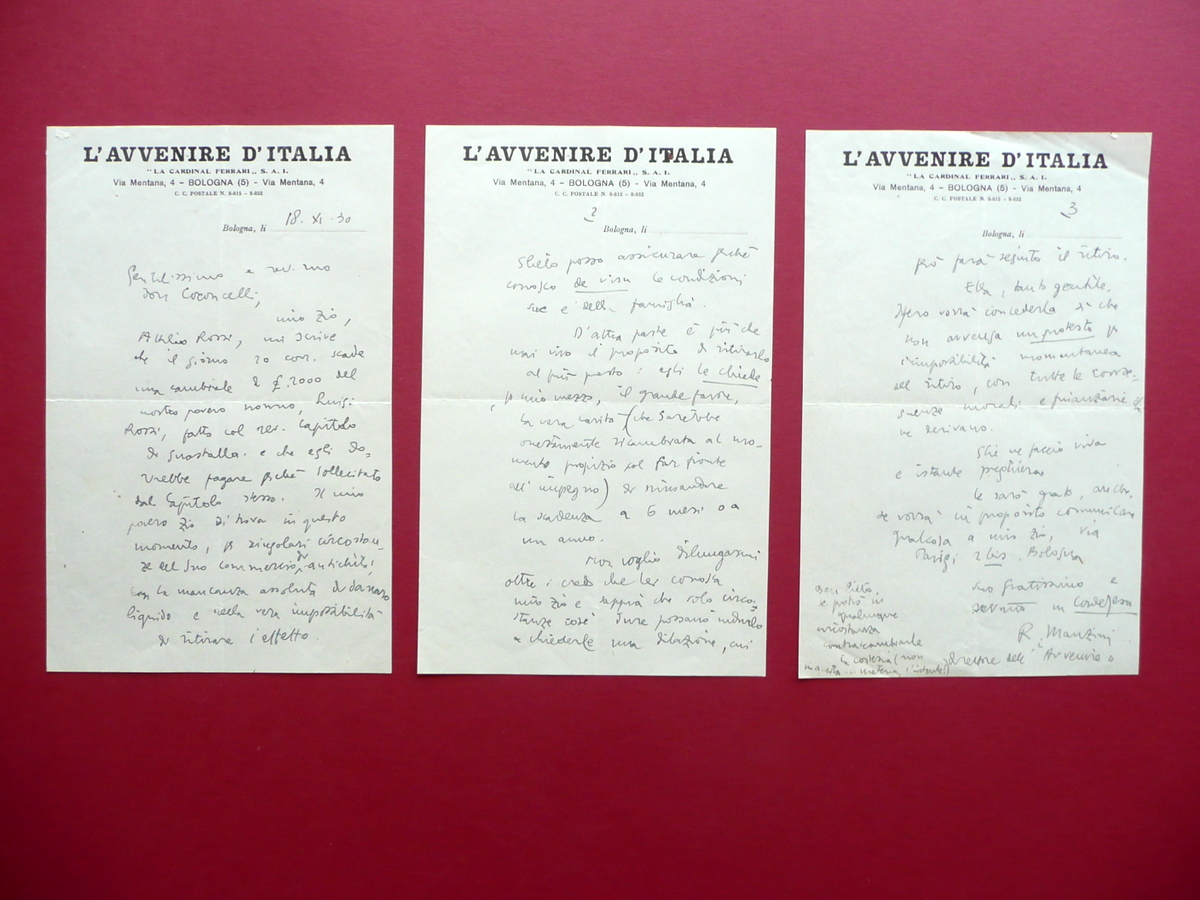 L'AVVENIRE D'ITALIA
"LA CARDINAL FERRARI„ S. A. I.
Via Mentana, 4 – BOLOGNA (5) – Via Mentana, 4
C. C. POSTALE N. 8-615 – 8-882
Bologna, li 18. XI. 30
Gentilissimo e rev.mo
Don Coconcelli,
mio zio,
Attilio Rossi, mi scrive
che il giorno 20 corr. scade
una cambiale di £. 2000 del
nostro povero nonno, Luigi
Rossi, fatta col rev. Capitolo
di Guastalla. e che egli do-
vrebbe pagare perché sollecitato
dal Capitolo stesso. Il mio
povero zio si trova in questo
momento, p singolari circostan-
ze del suo commercio di antichità,
con la mancanza assoluta di danaro
liquido e nella vera impossibilità
di ritirare l'effetto.
L'AVVENIRE D'ITALIA
"LA CARDINAL FERRARI„ S. A. I.
Via Mentana, 4 – BOLOGNA (5) – Via Mentana, 4
C. C. POSTALE N. 8-615 – 8-882
2
Bologna, li
Glielo posso assicurare perché
conosco de visu le condizioni
sue e della famiglia.
D'altra parte è più che
mai vivo il proposito di ritirarlo
al più presto: egli le chiede
p mio mezzo, il grande favore,
la vera carità (che sarebbe
onestamente ricambiata al mo-
mento propizio col far fronte
all'impegno) di rimandare
la scadenza a 6 mesi o a
un anno.
Non voglio dilungarmi
oltre: credo che lei conosca
mio zio e saprà che solo circo-
stanze così dure possano indurlo
a chiederle una dilazione, cui
L'AVVENIRE D'ITALIA
"LA CARDINAL FERRARI„ S. A. I.
Via Mentana, 4 – BOLOGNA (5) – Via Mentana, 4
C. C. POSTALE N. 8-615 – 8-882
3
Bologna, li
però farà seguito il ritiro.
Ella, tanto gentile,
spero vorrà concederla sì che
non avvenga un protesto p
l'impossibilità momentanea
del ritiro, con tutte le conse-
guenze morali e finanziarie che
ne derivano.
Gliene faccio viva
e istante preghiera
Le sarò grato, anche,
se vorrà in proposito comunicare
qualcosa a mio zio, via
Parigi 2 bis. Bologna
suo gratissimo e
in
R. Manzini
direttore dell' "Avvenire"
se potrò in
qualunque
circostanza
contraccambiarle
la cortesia (non